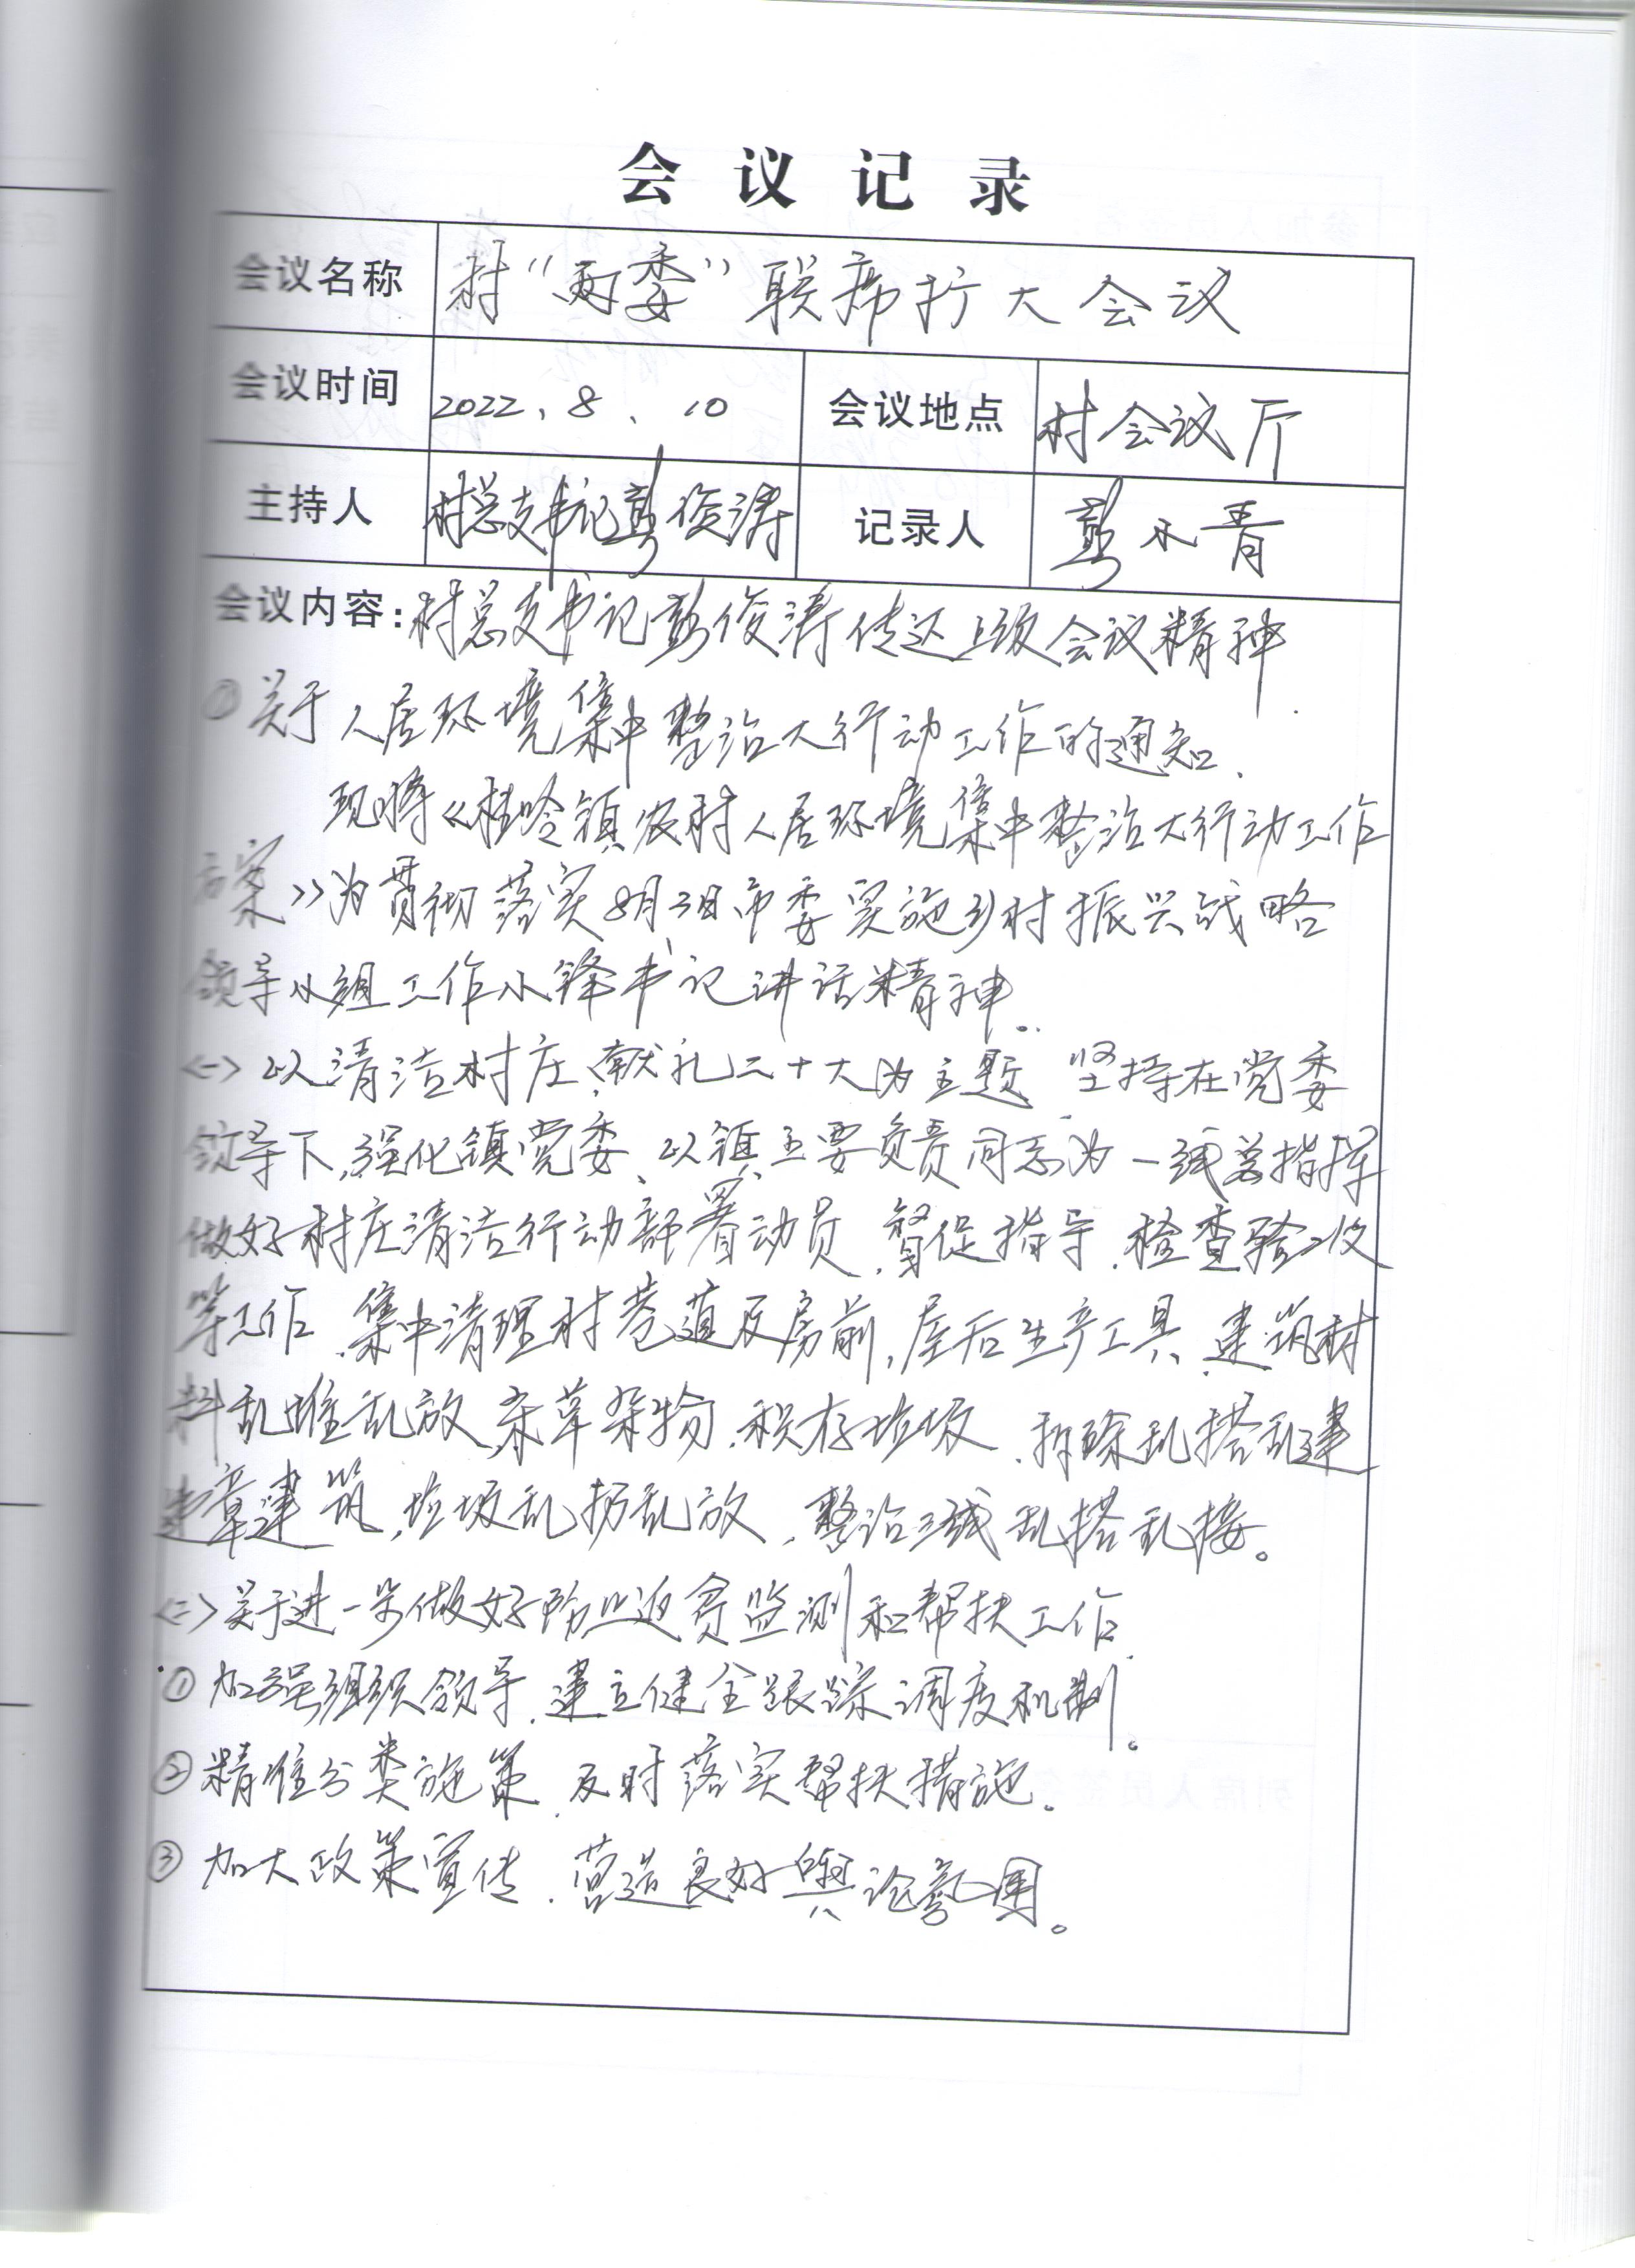 会议记录
会议名称 村“两委”联席扩大会议
会议时间 2022、8、10 会议地点 村会议厅
主持人 村总支书记彭俊涛 记录人 彭水青
会议内容:村总支书记彭俊涛传达上级会议精神.
①关于人居环境集中整治大行动工作的通知.
现将《桂岭镇农村人居环境集中整治大行动工作
方案》为贯彻落实8月3日市委实施乡村振兴战略
领导小组工作小锋书记讲话精神.
<一>以清洁村庄、献礼二十大为主题、坚持在党委
领导下,强化镇党委、以镇主要负责同志为一线总指挥
做好村庄清洁行动部署动员、督促指导、检查验收
等工作、集中清理村巷道及房前,屋后生产工具、建筑材
料乱堆乱放、杂草杂物、积存垃圾、拆除乱搭乱建
违章建筑,垃圾乱扔乱放,整治三线乱搭乱接。
<二>关于进一步做好防止返贫监测和帮扶工作.
①加强组织领导、建立健全跟踪调度机制。
②精准分类施策、及时落实帮扶措施。
③加大政策宣传、营造良好舆论氛围。